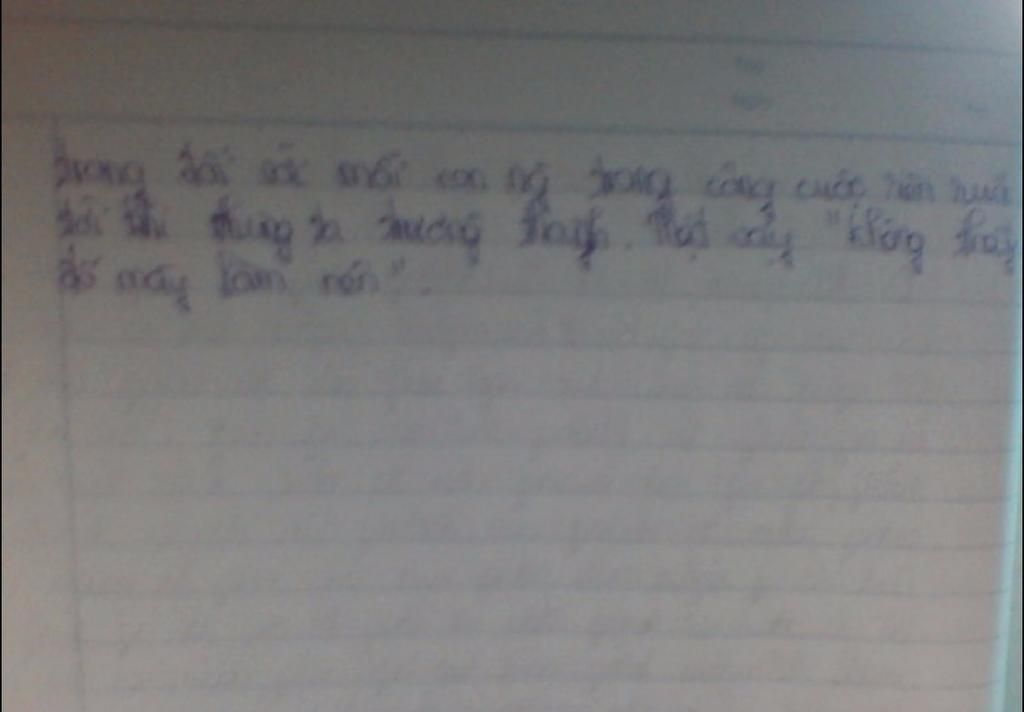 trong đối với mỗi con ng trong công cuộc rèn
tới khi chúng ta trưởng thành. Thật vậy "không thầy
đố mày làm nên".